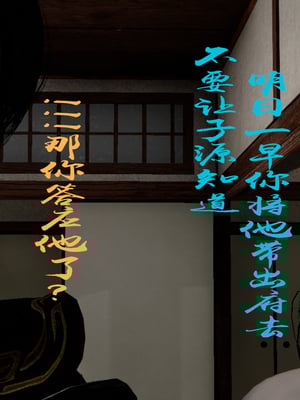 明日一早你将他带出府去
不要让子源知道
……那你答应他了?